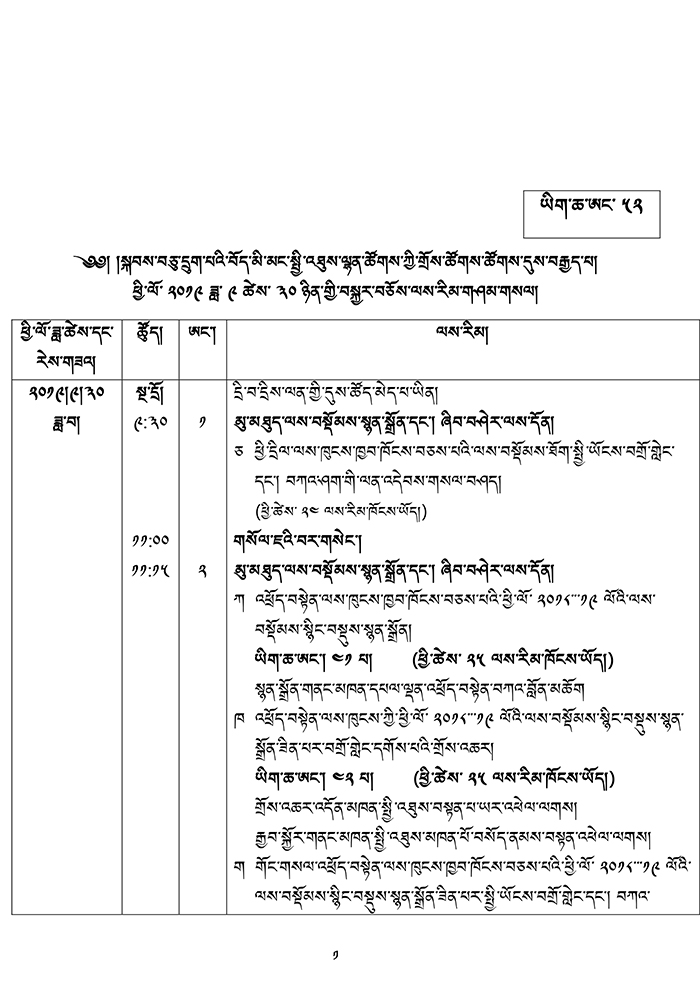 ཡིག་ཆ་ཨང་ ༥༢
༄༅། །སྐབས་བཅུ་དྲུག་པའི་བོད་མི་མང་སྤྱི་འཐུས་ལྷན་ཚོགས་ཀྱི་གྲོས་ཚོགས་ཚོགས་དུས་བརྒྱད་པ།
ཕྱི་ལོ་ ༢༠༡༩ ཟླ་ ༩ ཚེས་ ༣༠ ཉིན་གྱི་བསྐྱར་བཅོས་ལས་རིམ་གཤམ་གསལ།
ཕྱི་ལོ་ཟླ་ཚེས་དང་ ཆོུད། ཨང་། ལས་རིམ།
རེས་གཟའ།
༢༠༡༩།༩།༣༠ སྔ་དྲོ། དྲི་བ་དྲིས་ལན་གྱི་དུས་ཚོད་མེད་པ་ཡིན།
ཟླ་བ། ༩:༣༠ ༡ མུ་མཐུད་ལས་བསྡོམས་སྙན་སྒྲོན་དང་། ཞིབ་བཤེར་ལས་དོན།
ཅ ཕྱི་དྲིལ་ལས་ཁུངས་ཁྱབ་ཁོངས་བཅས་པའི་ལས་བསྡོམས་ཐོག་སྤྱི་ཡོངས་བགྲོ་གླེང་
དང་། བཀའ་ཤག་གི་ལན་འདེབས་གསལ་བཤད།
(ཕྱི་ཚེས་ ༢༤ ལས་རིམ་ཁོངས་ཡོད།)
༡༡:༠༠ གསོལ་ཇའི་བར་གསེང་།
༡༡:༡༥ ༢ མུ་མཐུད་ལས་བསྡོམས་སྙན་སྒྲོན་དང་། ཞིབ་བཤེར་ལས་དོན།
ཀ འཕྲོད་བསྟེན་ལས་ཁུངས་ཁྱབ་ཁོངས་བཅས་པའི་ཕྱི་ལོ་ ༢༠༡༨་་་༡༩ ལོའི་ལས་
བསྡོམས་སྙིང་བསྡུས་སྙན་སྒྲོན།
ཡིག་ཆ་ཨང་། ༤༡ པ། (ཕྱི་ཚེས་ ༢༥ ལས་རིམ་ཁོངས་ཡོད།)
སྙན་སྒྲོན་གནང་མཁན་དཔལ་ལྡན་འཕྲོད་བསྟེན་བཀའ་བློན་མཆོག
ཁ འཕྲོད་བསྟེན་ལས་ཁུངས་ཀྱི་ཕྱི་ལོ་ ༢༠༡༨་་་༡༩ ལོའི་ལས་བསྡོམས་སྙིང་བསྡུས་སྙན་
སྒྲོན་ཟིན་པར་བགྲོ་གླེང་དགོས་པའི་གྲོས་འཆར།
ཡིག་ཆ་ཨང་། ༤༢ པ། (ཕྱི་ཚེས་ ༢༥ ལས་རིམ་ཁོངས་ཡོད།)
གྲོས་འཆར་འདོན་མཁན་སྤྱི་འཐུས་བསྟན་པ་ཡར་འཕེལ་ལགས།
རྒྱབ་སྐྱོར་གནང་མཁན་སྤྱི་འཐུས་མཁན་པོ་བསོད་ནམས་བསྟན་འཕེལ་ལགས།
ག གོང་གསལ་འཕྲོད་བསྟེན་ལས་ཁུངས་ཁྱབ་ཁོངས་བཅས་པའི་ཕྱི་ལོ་ ༢༠༡༨་་་༡༩ ལོའི་
ལས་བསྡོམས་སྙིང་བསྡུས་སྙན་སྒྲོན་ཟིན་པར་སྤྱི་ཡོངས་བགྲོ་གླེང་དང་། བཀའ་
༡